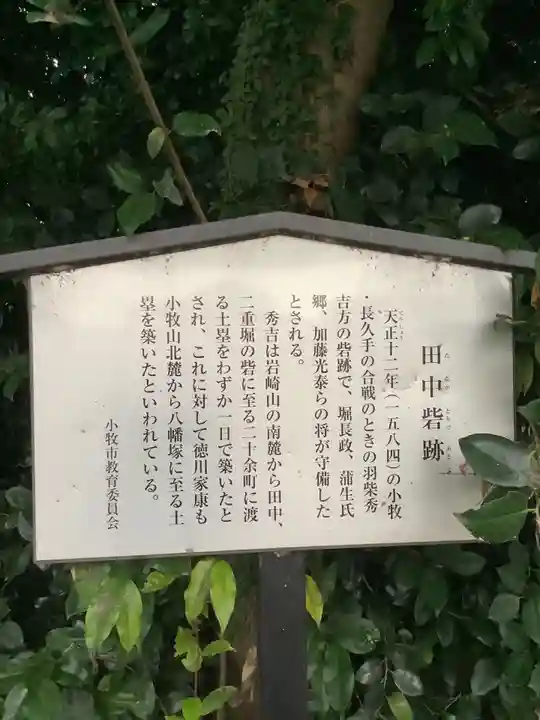 田中砦跡
天正十二年(一五八四)の小牧
・長久手の合戦のときの羽柴秀
吉方の砦跡で、堀長政、蒲生氏
郷、加藤光泰らの将が守備した
とされる。
秀吉は岩崎山の南麓から田中、
二重堀の砦に至る二十余町に渡
る土塁をわずか一日で築いたと
され、これに対して徳川家康も
小牧山北麓から八幡塚に至る土
塁を築いたといわれている。
小牧市教育委員会